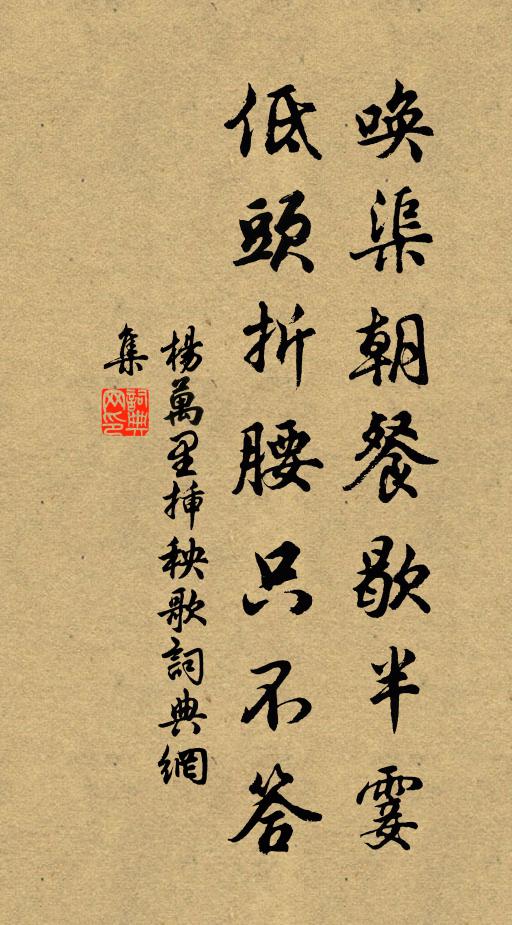 喚渠朝餐歇半霎
低頭折腰只不答
楊萬里插秧歌詞典網
集
詞典網印